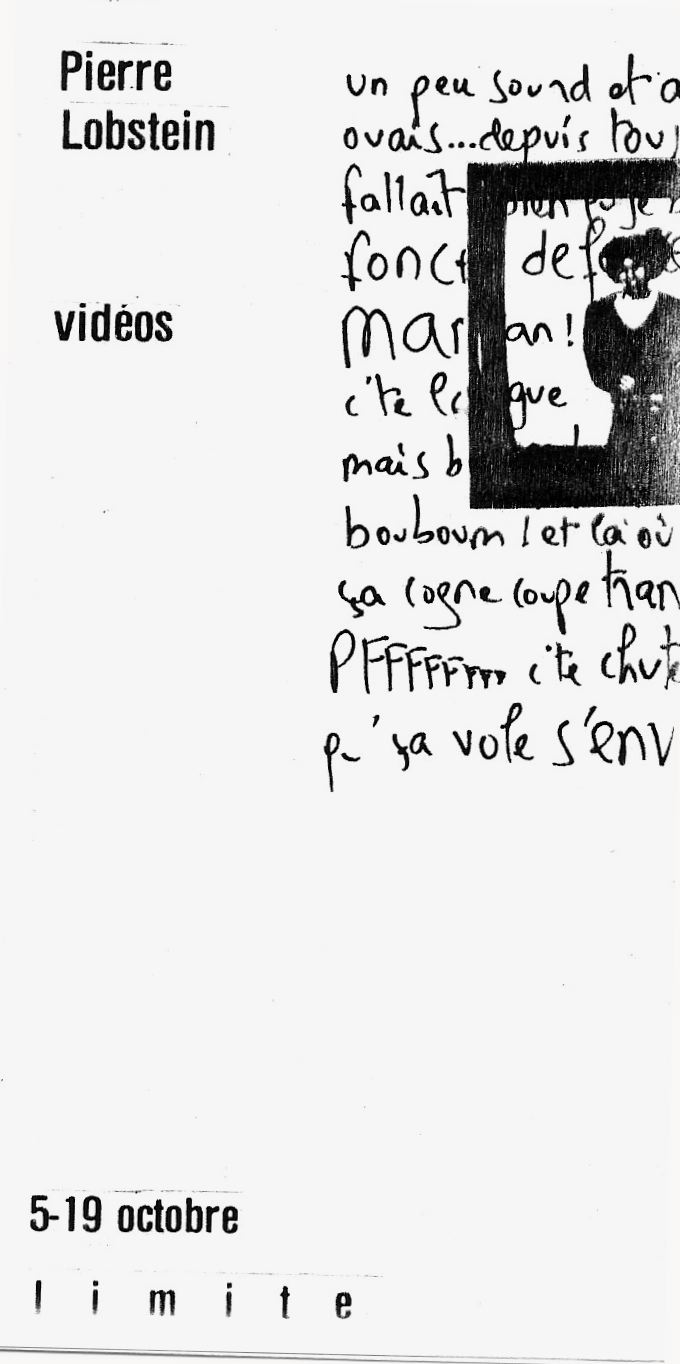 Pierre
Lobstein
vidéos
un peu sound et a
ouais...depuis touj
fallait bien qu je
fonct def
mar an!
c'te l gue
mais b
bouboum ! et la où
ça cogne coupe tran
PFFFFFFFFF c'te chute
qu' ça vole s'env
5-19 octobre
l i m i t e